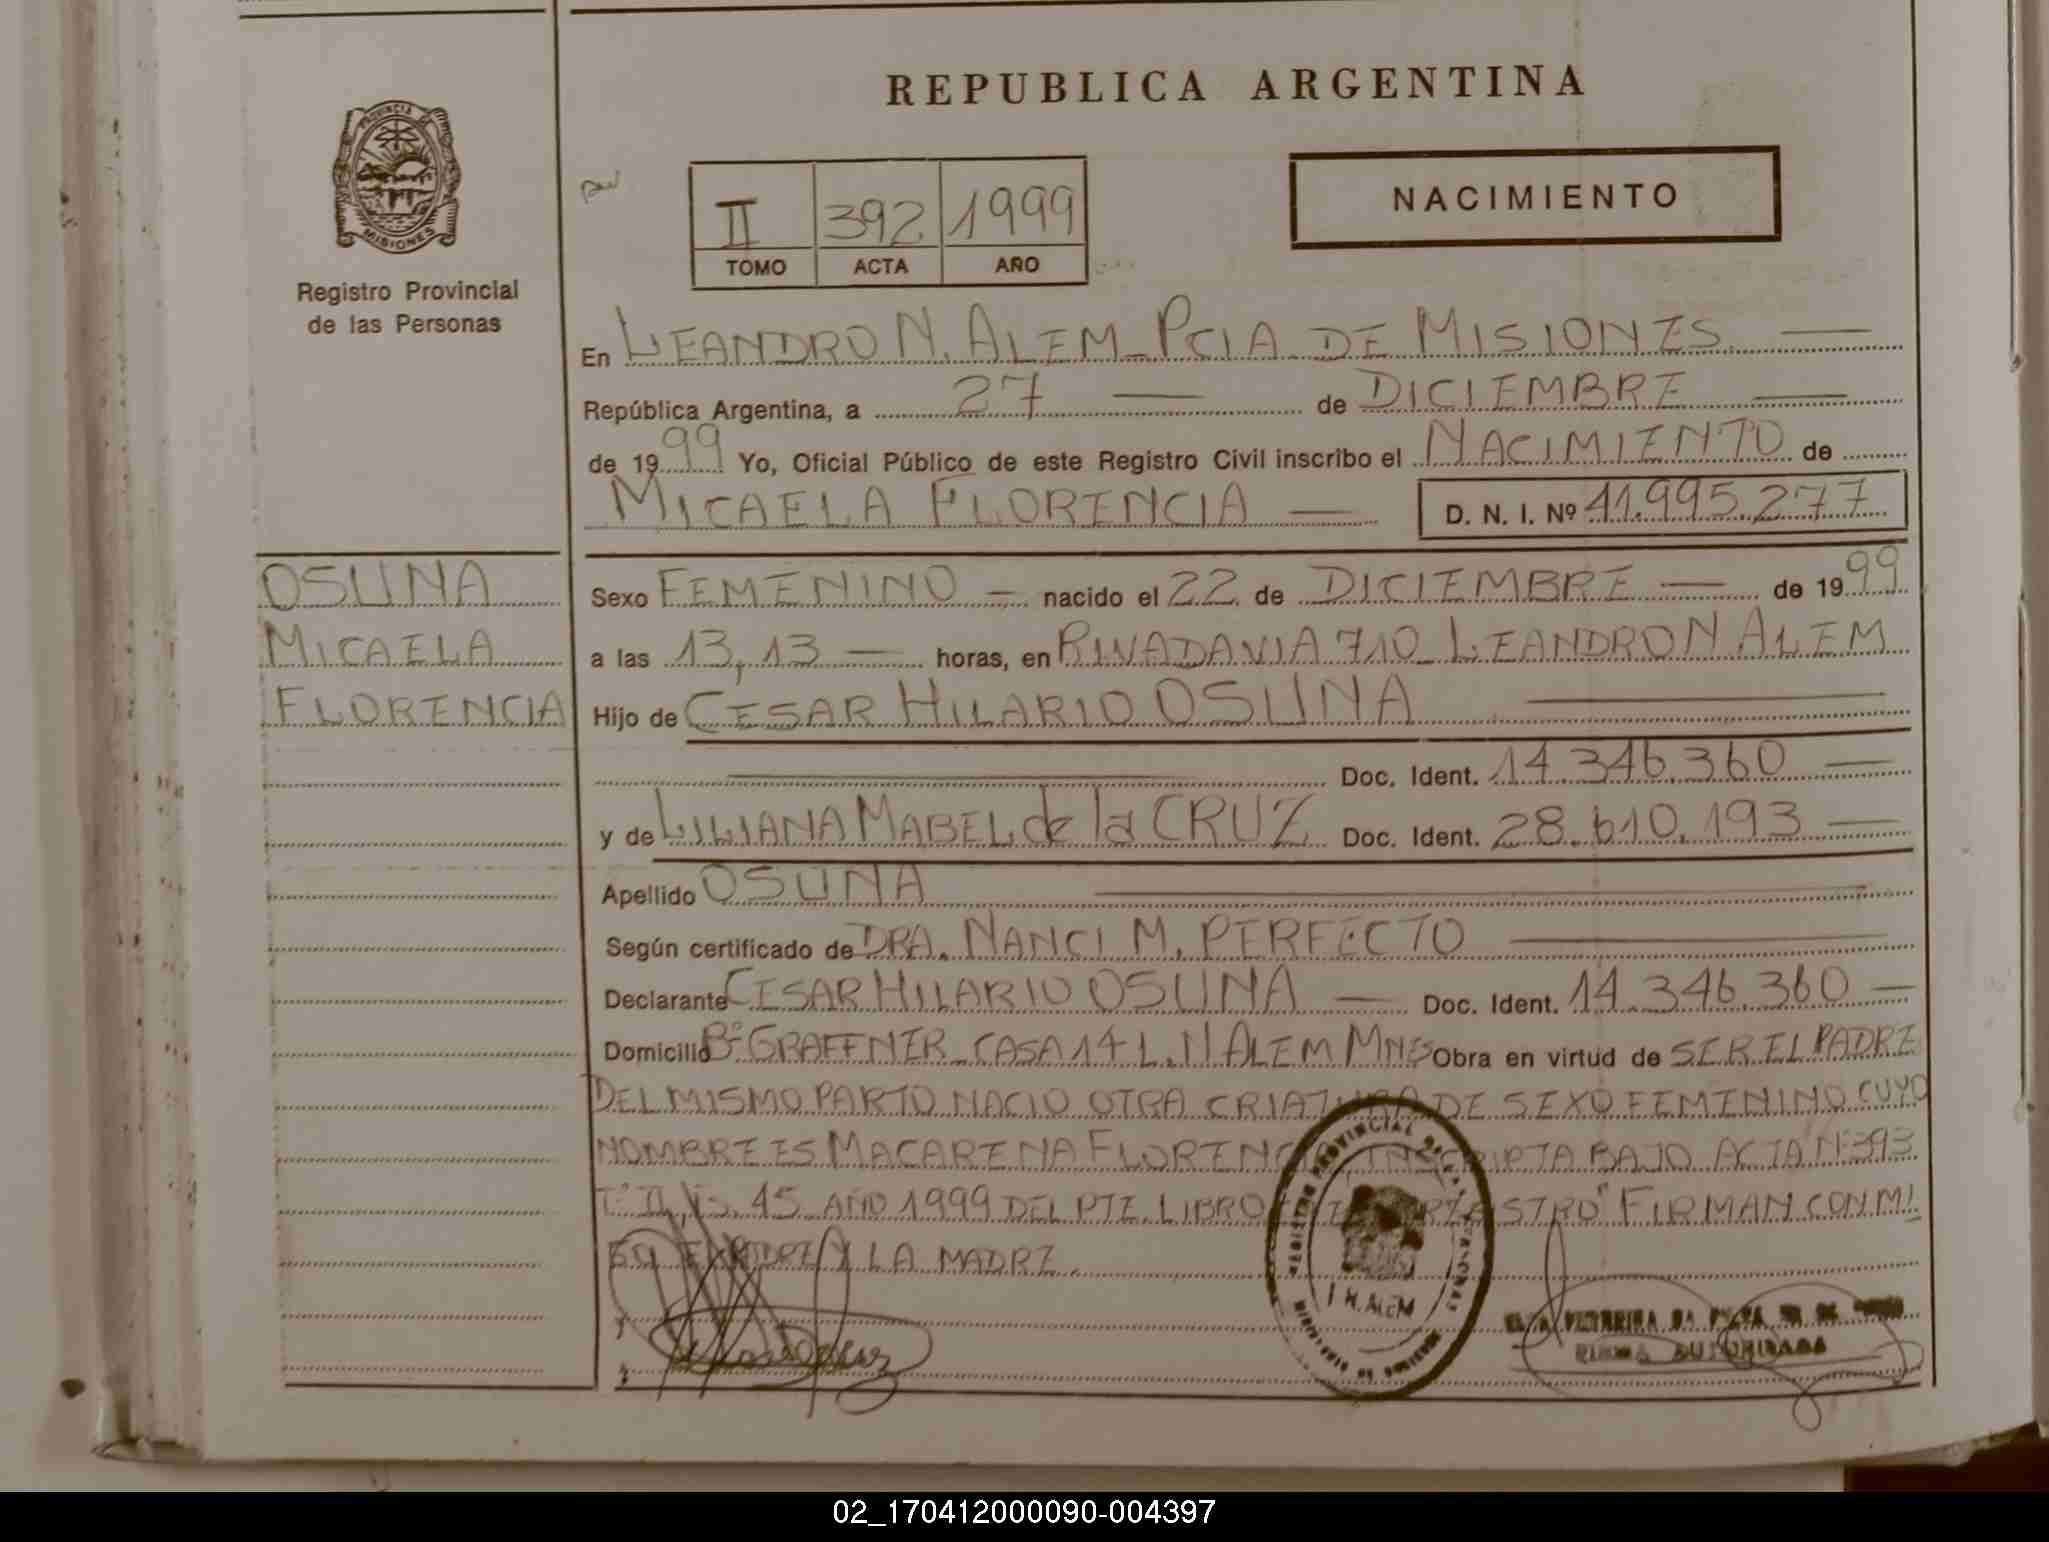 REPUBLICA ARGENTINA
PROVINCIA DE MISIONES
Registro Provincial
de las Personas
II 392 1999
TOMO ACTA AÑO
NACIMIENTO
En LEANDRO N. ALEM - PCIA DE MISIONES.
República Argentina, a 27 de DICIEMBRE
de 1999 Yo, Oficial Público de este Registro Civil inscribo el NACIMIENTO de
MICAELA FLORENCIA D. N. I. Nº 41.995.277
OSUNA
MICAELA
FLORENCIA
Sexo FEMENINO nacido el 22 de DICIEMBRE de 1999
a las 13,13 horas, en RIVADAVIA 710 - LEANDRO N ALEM
Hijo de CESAR HILARIO OSUNA
Doc. Ident. 14.346.360
y de LILIANA MABEL de la CRUZ Doc. Ident. 28.610.193
Apellido OSUNA
Según certificado de DRA. NANCI M. PERFECTO
Declarante CESAR HILARIO OSUNA Doc. Ident. 14.346.360
Domicilio Bº GRAFFNER - CASA 14 L. N ALEM MNES Obra en virtud de SER EL PADRE
DEL MISMO PARTO NACIO OTRA CRIATURA DE SEXO FEMENINO CUYO
NOMBRE ES MACARENA FLORENCIA INSCRIPTA BAJO ACTA Nº 393
Tº II, 45 AÑO 1999 DEL PTE. LIBRO FIRMAN CON MI
EL PADRE Y LA MADRE.
REGISTRO PROVINCIAL DE LAS PERSONAS
L N. ALEM
FIRMA AUTORIZADA
02_170412000090-004397